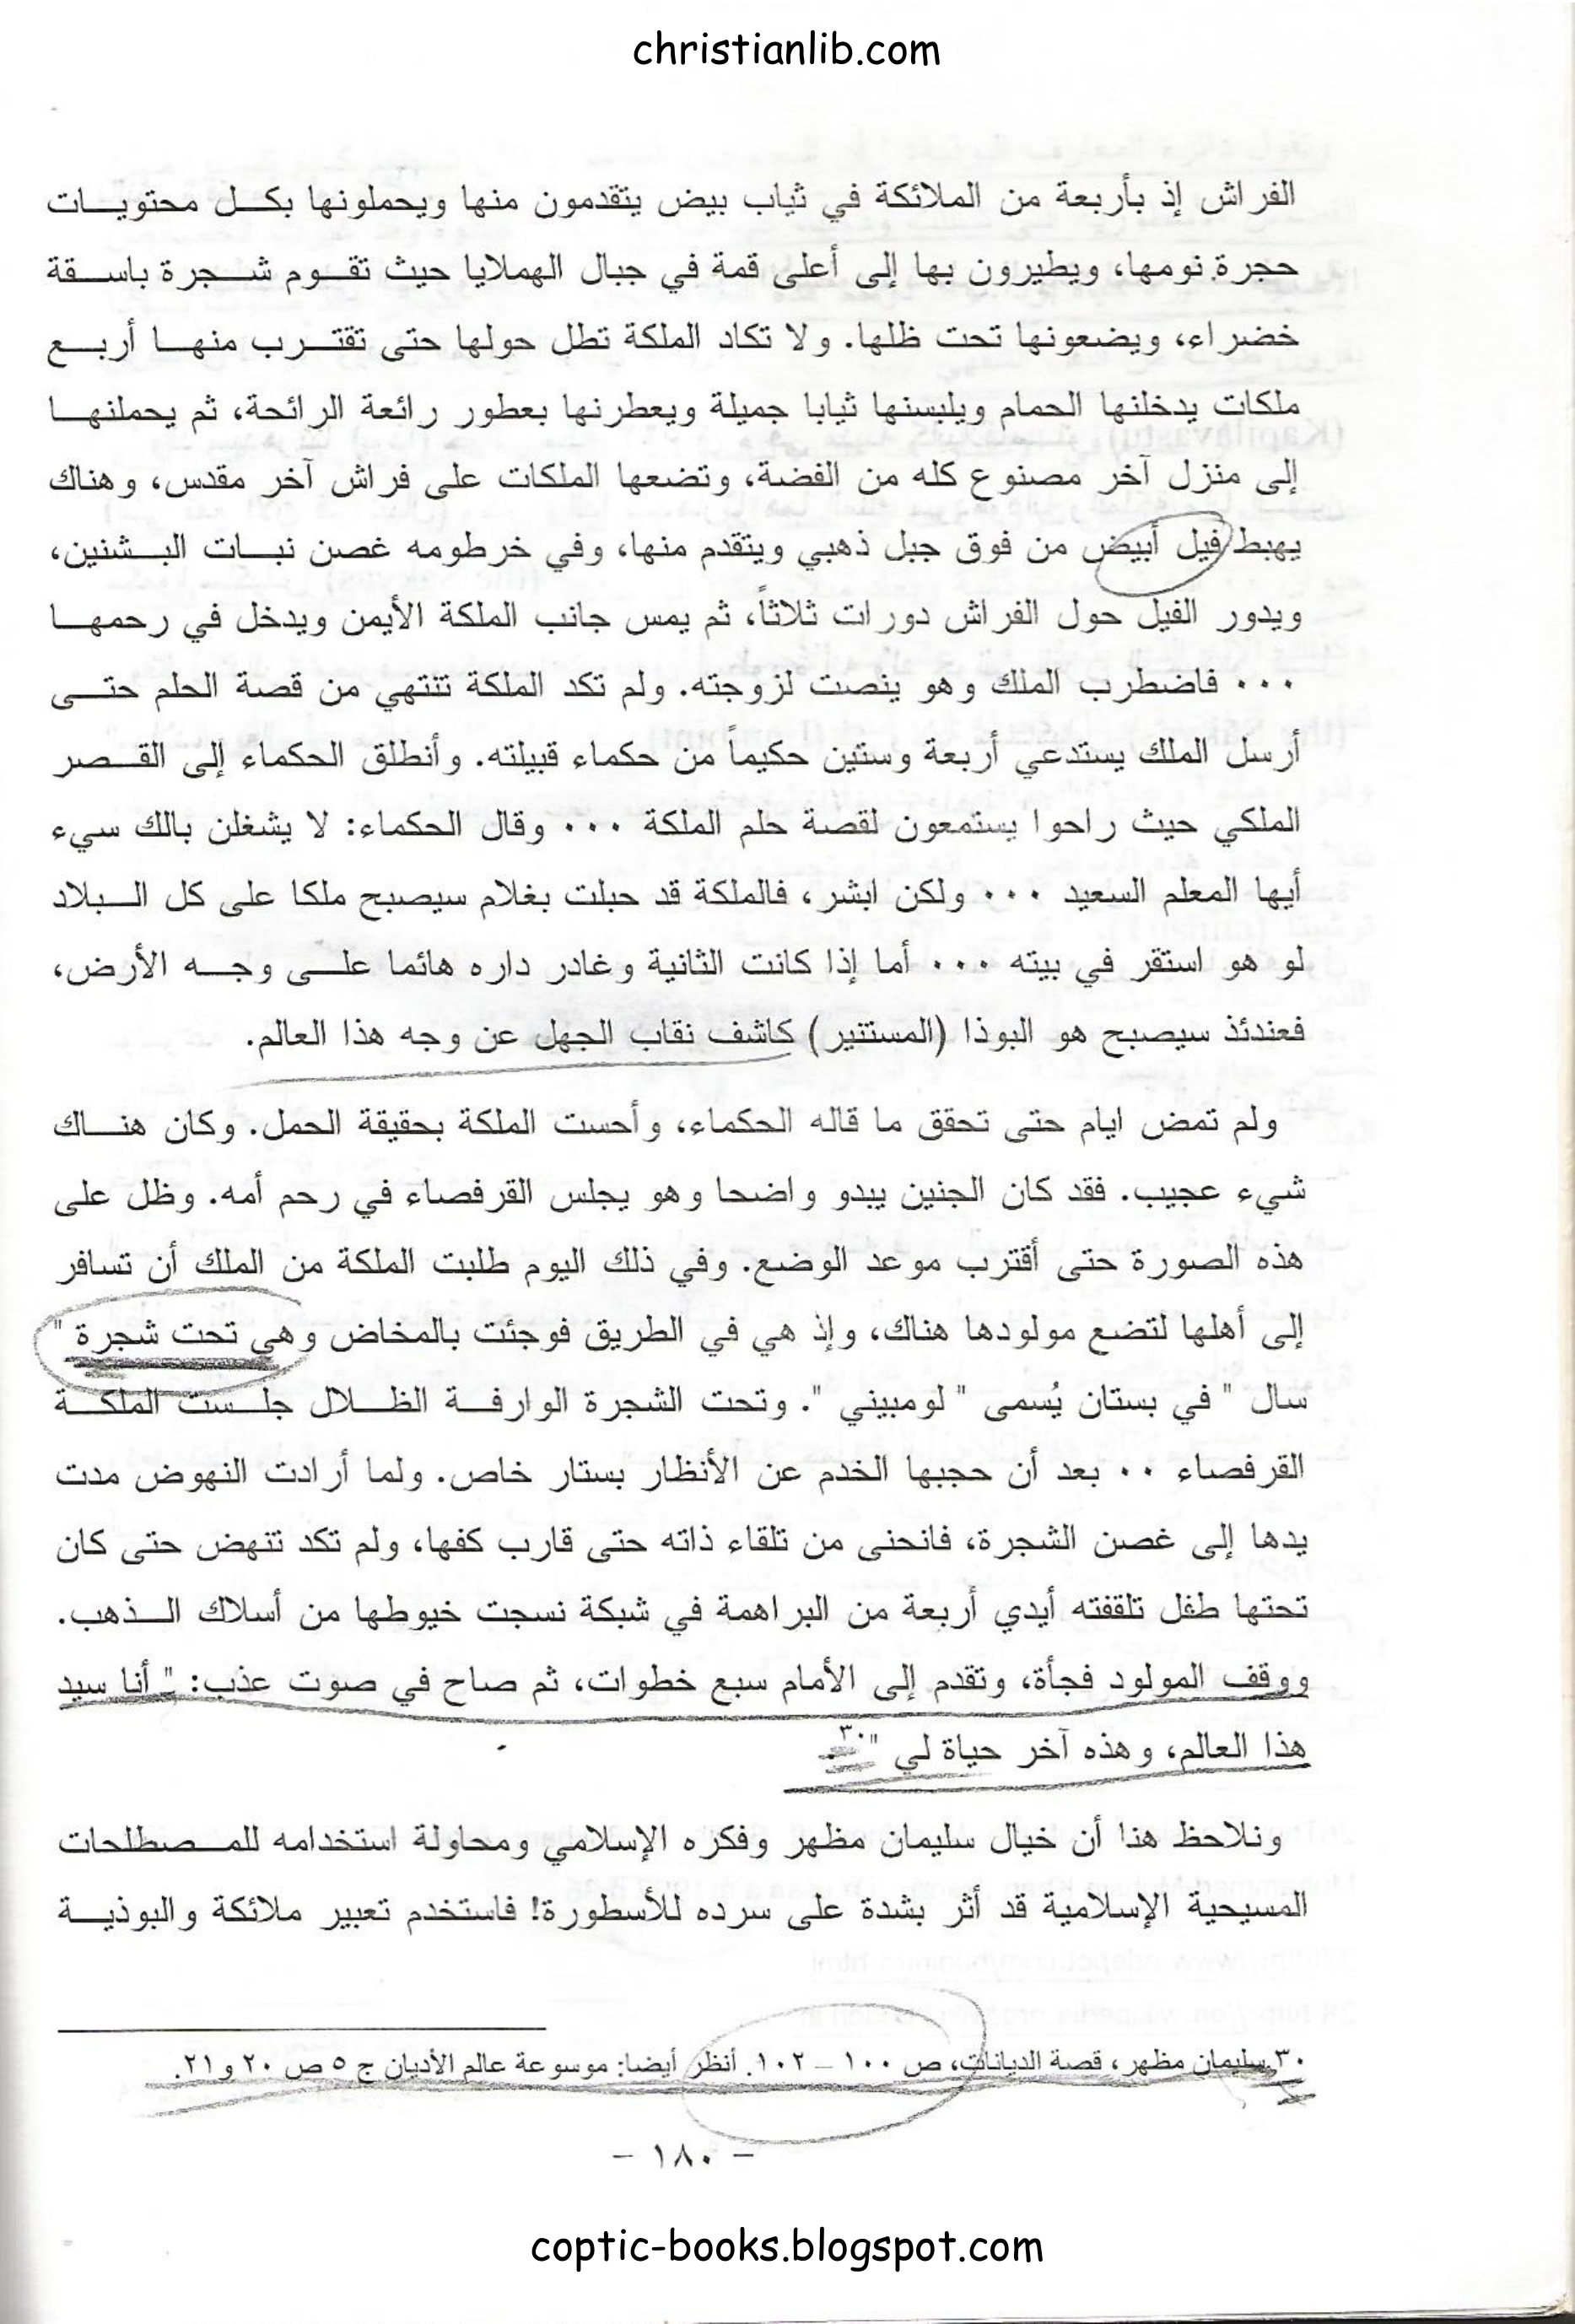 christianlib.com
الفراش إذ بأربعة من الملائكة في ثياب بيض يتقدمون منها ويحملونها بكل محتويات
حجرة نومها، ويطيرون بها إلى أعلى قمة في جبال الهملايا حيث تقوم شجرة باسقة
خضراء، ويضعونها تحت ظلها. ولا تكاد الملكة تطل حولها حتى تقترب منها أربع
ملكات يدخلنها الحمام ويلبسنها ثيابا جميلة ويعطرنها بعطور رائعة الرائحة، ثم يحملنها
إلى منزل آخر مصنوع كله من الفضة، وتضعها الملكات على فراش آخر مقدس، وهناك
يهبط فيل أبيض من فوق جبل ذهبي ويتقدم منها، وفي خرطومه غصن نبات البشنين،
ويدور الفيل حول الفراش دورات ثلاثاً، ثم يمس جانب الملكة الأيمن ويدخل في رحمها
٠٠٠ فاضطرب الملك وهو ينصت لزوجته. ولم تكد الملكة تنتهي من قصة الحلم حتى
أرسل الملك يستدعي أربعة وستين حكيماً من حكماء قبيلته. وأنطلق الحكماء إلى القصر
الملكي حيث راحوا يستمعون لقصة حلم الملكة ٠٠٠ وقال الحكماء: لا يشغلن بالك سيء
أيها المعلم السعيد ٠٠٠ ولكن ابشر، فالملكة قد حبلت بغلام سيصبح ملكا على كل البلاد
لو هو استقر في بيته ٠٠٠ أما إذا كانت الثانية وغادر داره هائما على وجه الأرض،
فعندئذ سيصبح هو البوذا (المستنير) كاشف نقاب الجهل عن وجه هذا العالم.
ولم تمض ايام حتى تحقق ما قاله الحكماء، وأحست الملكة بحقيقة الحمل. وكان هناك
شيء عجيب. فقد كان الجنين يبدو واضحا وهو يجلس القرفصاء في رحم أمه. وظل على
هذه الصورة حتى أقترب موعد الوضع. وفي ذلك اليوم طلبت الملكة من الملك أن تسافر
إلى أهلها لتضع مولودها هناك، وإذ هي في الطريق فوجئت بالمخاض وهي تحت شجرة "
سال " في بستان يُسمى " لومبيني ". وتحت الشجرة الوارفة الظلال جلست الملكة
القرفصاء ٠٠ بعد أن حجبها الخدم عن الأنظار بستار خاص. ولما أرادت النهوض مدت
يدها إلى غصن الشجرة، فانحنى من تلقاء ذاته حتى قارب كفها، ولم تكد تنهض حتى كان
تحتها طفل تلقفته أيدي أربعة من البراهمة في شبكة نسجت خيوطها من أسلاك الذهب.
ووقف المولود فجأة، وتقدم إلى الأمام سبع خطوات، ثم صاح في صوت عذب: " أنا سيد
هذا العالم، وهذه آخر حياة لي "٣٠.
ونلاحظ هنا أن خيال سليمان مظهر وفكره الإسلامي ومحاولة استخدامه للمصطلحات
المسيحية الإسلامية قد أثر بشدة على سرده للأسطورة! فاستخدم تعبير ملائكة والبوذية
٣٠ سليمان مظهر، قصة الديانات، ص ١٠٠ – ١٠٢. أنظر أيضا: موسوعة عالم الأديان ج ٥ ص ٢٠ و٢١.
– ١٨٠ –
coptic-books.blogspot.com